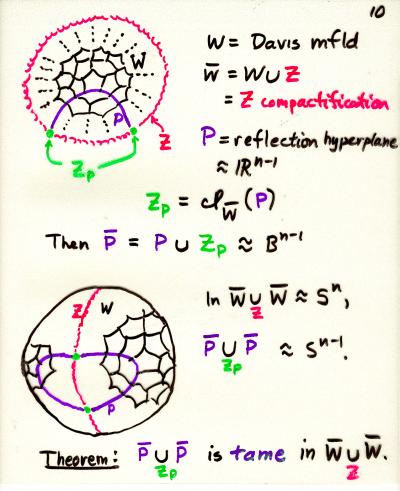 10
W = Davis mfld
W̅ = W ∪ Z
= Z compactification
P = reflection hyperplane
≈ ℝⁿ⁻¹
W
P
Z
Z_P
Z_P = cl_W̅ (P)
Then P̅ = P ∪ Z_P ≈ Bⁿ⁻¹
Z
W
P
In W̅ ∪_Z W̅ ≈ Sⁿ,
P̅ ∪_{Z_P} P̅ ≈ Sⁿ⁻¹.
Theorem: P̅ ∪_{Z_P} P̅ is tame in W̅ ∪_Z W̅.